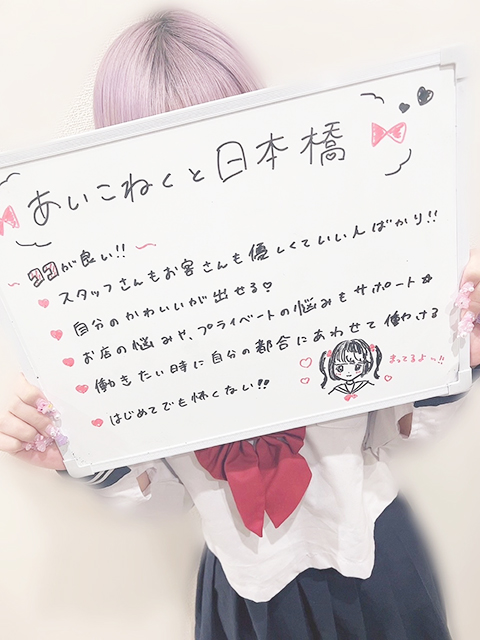 あいこねくと日本橋
ココが良い!!
スタッフさんもお客さんも優しくていい人ばかり!!
自分のかわいいが出せる♡
お店の悩みや、プライベートの悩みもサポート☆
働きたい時に自分の都合にあわせて働ける
はじめてでも怖くない!!
まってるよ〜!!